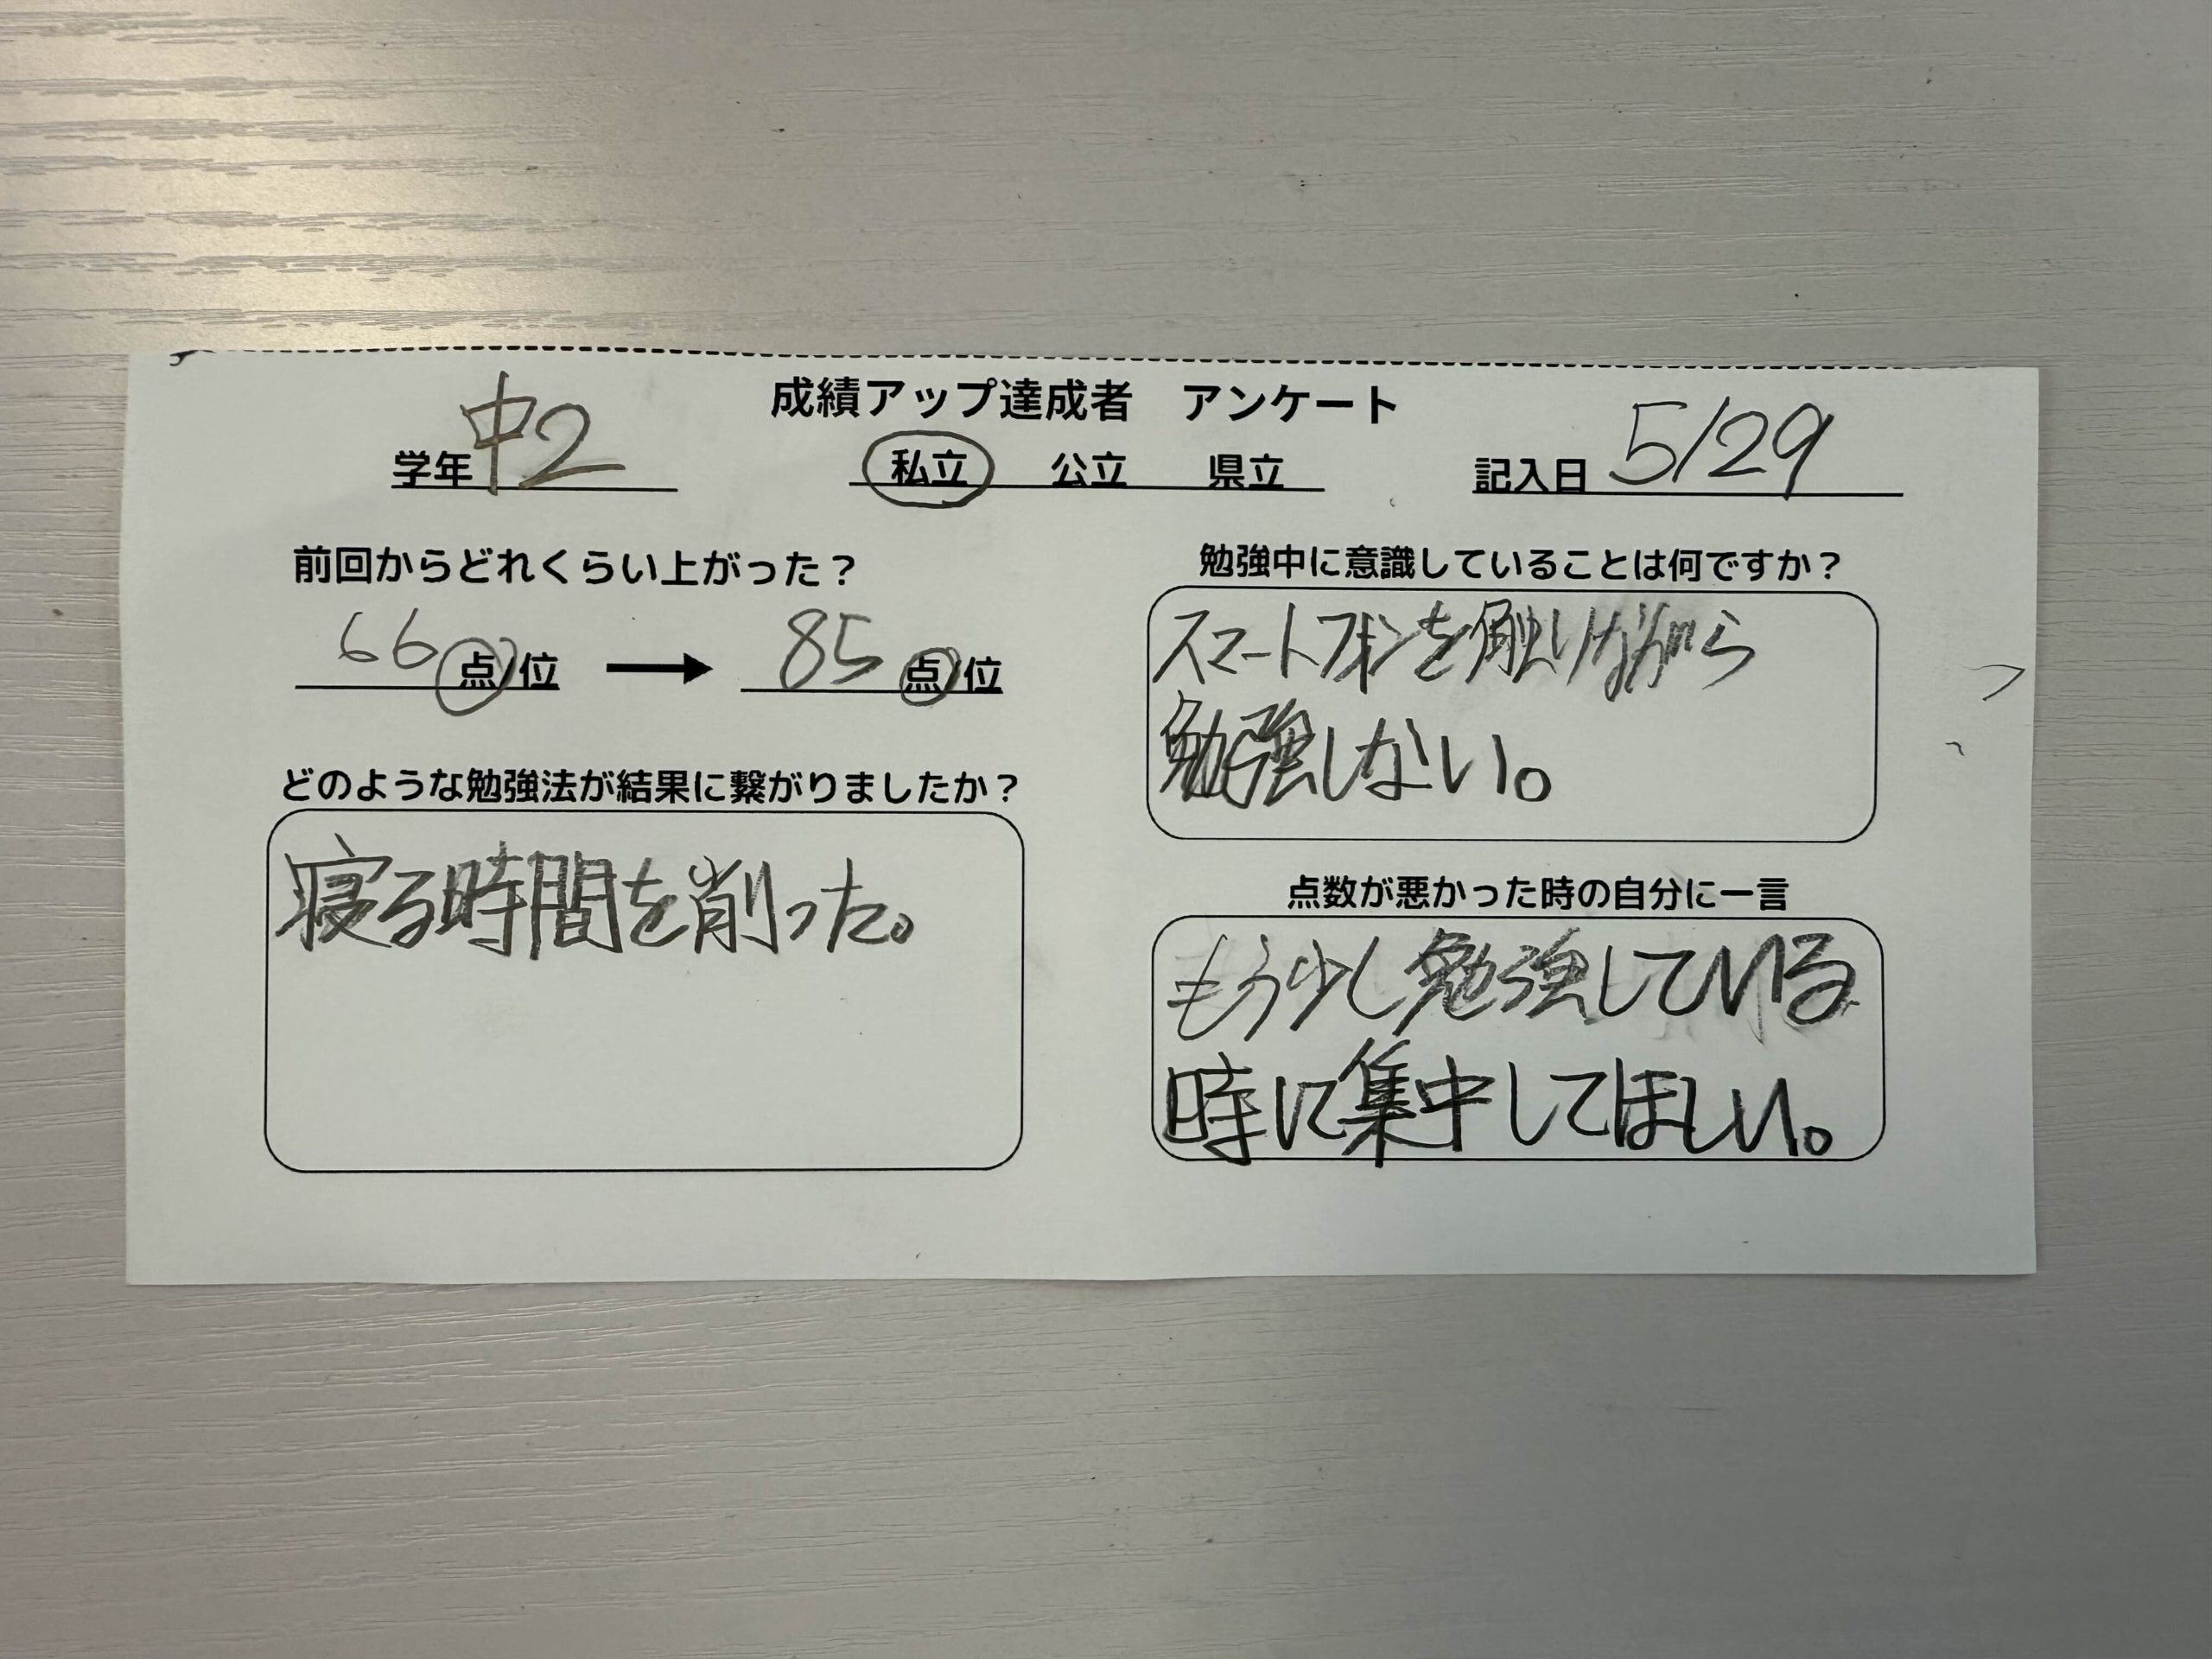 成績アップ達成者 アンケート
学年 中2 私立 公立 県立 記入日 5/29
前回からどれくらい上がった？
66 点/位 → 85 点/位
どのような勉強法が結果に繋がりましたか？
寝る時間を削った。
勉強中に意識していることは何ですか？
スマートフォンを触りながら
勉強しない。
点数が悪かった時の自分に一言
もう少し勉強している
時に集中してほしい。